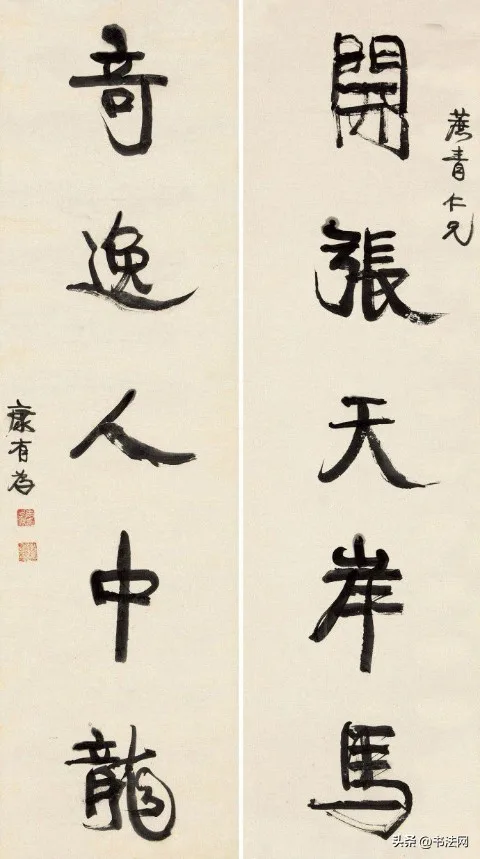 蔗青仁兄
開張天岸馬
奇逸人中龍
康有為
头条@书法网